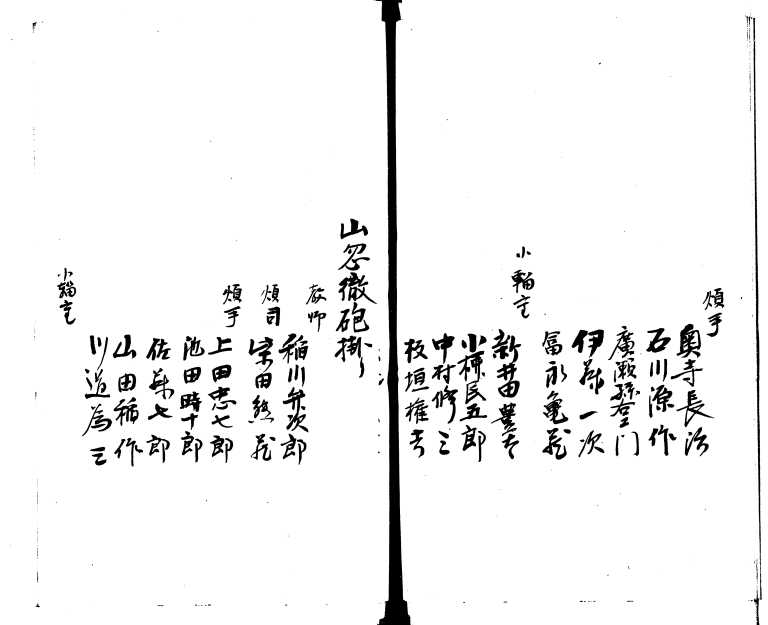 煩手
奥寺長治
石川源作
廣瀬孫右エ門
伊藤一次
冨永亀蔵
小輜重
新井田豊太
小棟民五郎
中村修三
板垣権吉
山忽徹砲掛り
教師
稲川弁次郎
煩司
宗田
煩手
上田忠七郎
池田時十郎
佐藤七郎
山田稲作
川道為三
小輜重